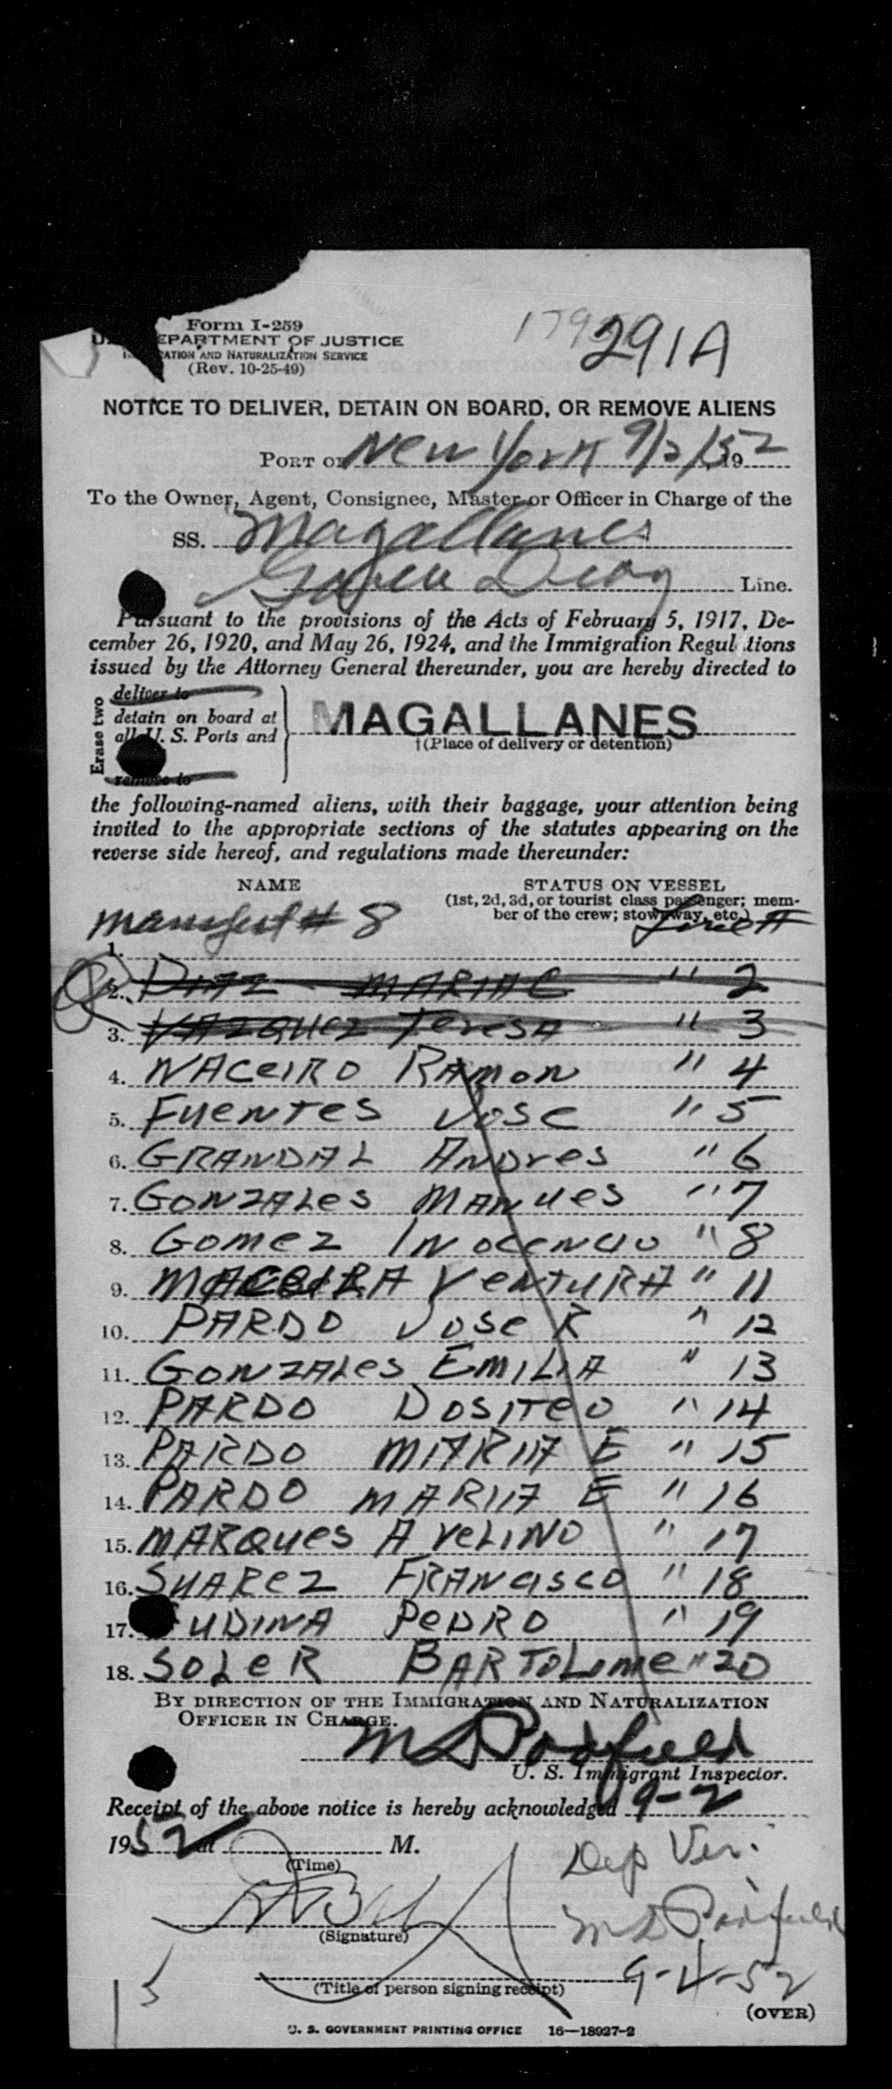 Form I-259
291A
DEPARTMENT OF JUSTICE
IMMIGRATION AND NATURALIZATION SERVICE
(Rev. 10-25-49)
NOTICE TO DELIVER, DETAIN ON BOARD, OR REMOVE ALIENS
PORT OF New York 9/2/52 1952
To the Owner, Agent, Consignee, Master or Officer in Charge of the
SS. Magallanes
Garcia Diaz Line.
Pursuant to the provisions of the Acts of February 5, 1917, De-
cember 26, 1920, and May 26, 1924, and the Immigration Regulations
issued by the Attorney General thereunder, you are hereby directed to
Erase two
deliver to
detain on board at
all U. S. Ports and
remove to
MAGALLANES
†(Place of delivery or detention)
the following-named aliens, with their baggage, your attention being
invited to the appropriate sections of the statutes appearing on the
reverse side hereof, and regulations made thereunder:
NAME STATUS ON VESSEL
(1st, 2d, 3d, or tourist class passenger; mem-
ber of the crew; stowaway, etc.)
manifest # 8 Line #
1.
2. DIAZ MARIA C " 2
3. VAZQUEZ Teresa " 3
4. NACEIRO RAMON " 4
5. FUENTES JOSE " 5
6. GRANDAL ANDRES " 6
7. GONZALES MANUES " 7
8. GOMEZ INOCENCIO " 8
9. MACEIRA VENTURA " 11
10. PARDO JOSE R " 12
11. GONZALES EMILIA " 13
12. PARDO DOSITEO " 14
13. PARDO MARIA E " 15
14. PARDO MARIA E " 16
15. MARQUES AVELINO " 17
16. SUAREZ FRANCISCO " 18
17. UDINA PEDRO " 19
18. SOLER BARTOLOME " 20
BY DIRECTION OF THE IMMIGRATION AND NATURALIZATION
OFFICER IN CHARGE.
M D Padfield
U. S. Immigrant Inspector.
Receipt of the above notice is hereby acknowledged 9-2
1952 at M.
(Time)
Dep Ver.
(Signature)
M D Padfield
9-4-52
(Title of person signing receipt)
(OVER)
U. S. GOVERNMENT PRINTING OFFICE 16—18927-2